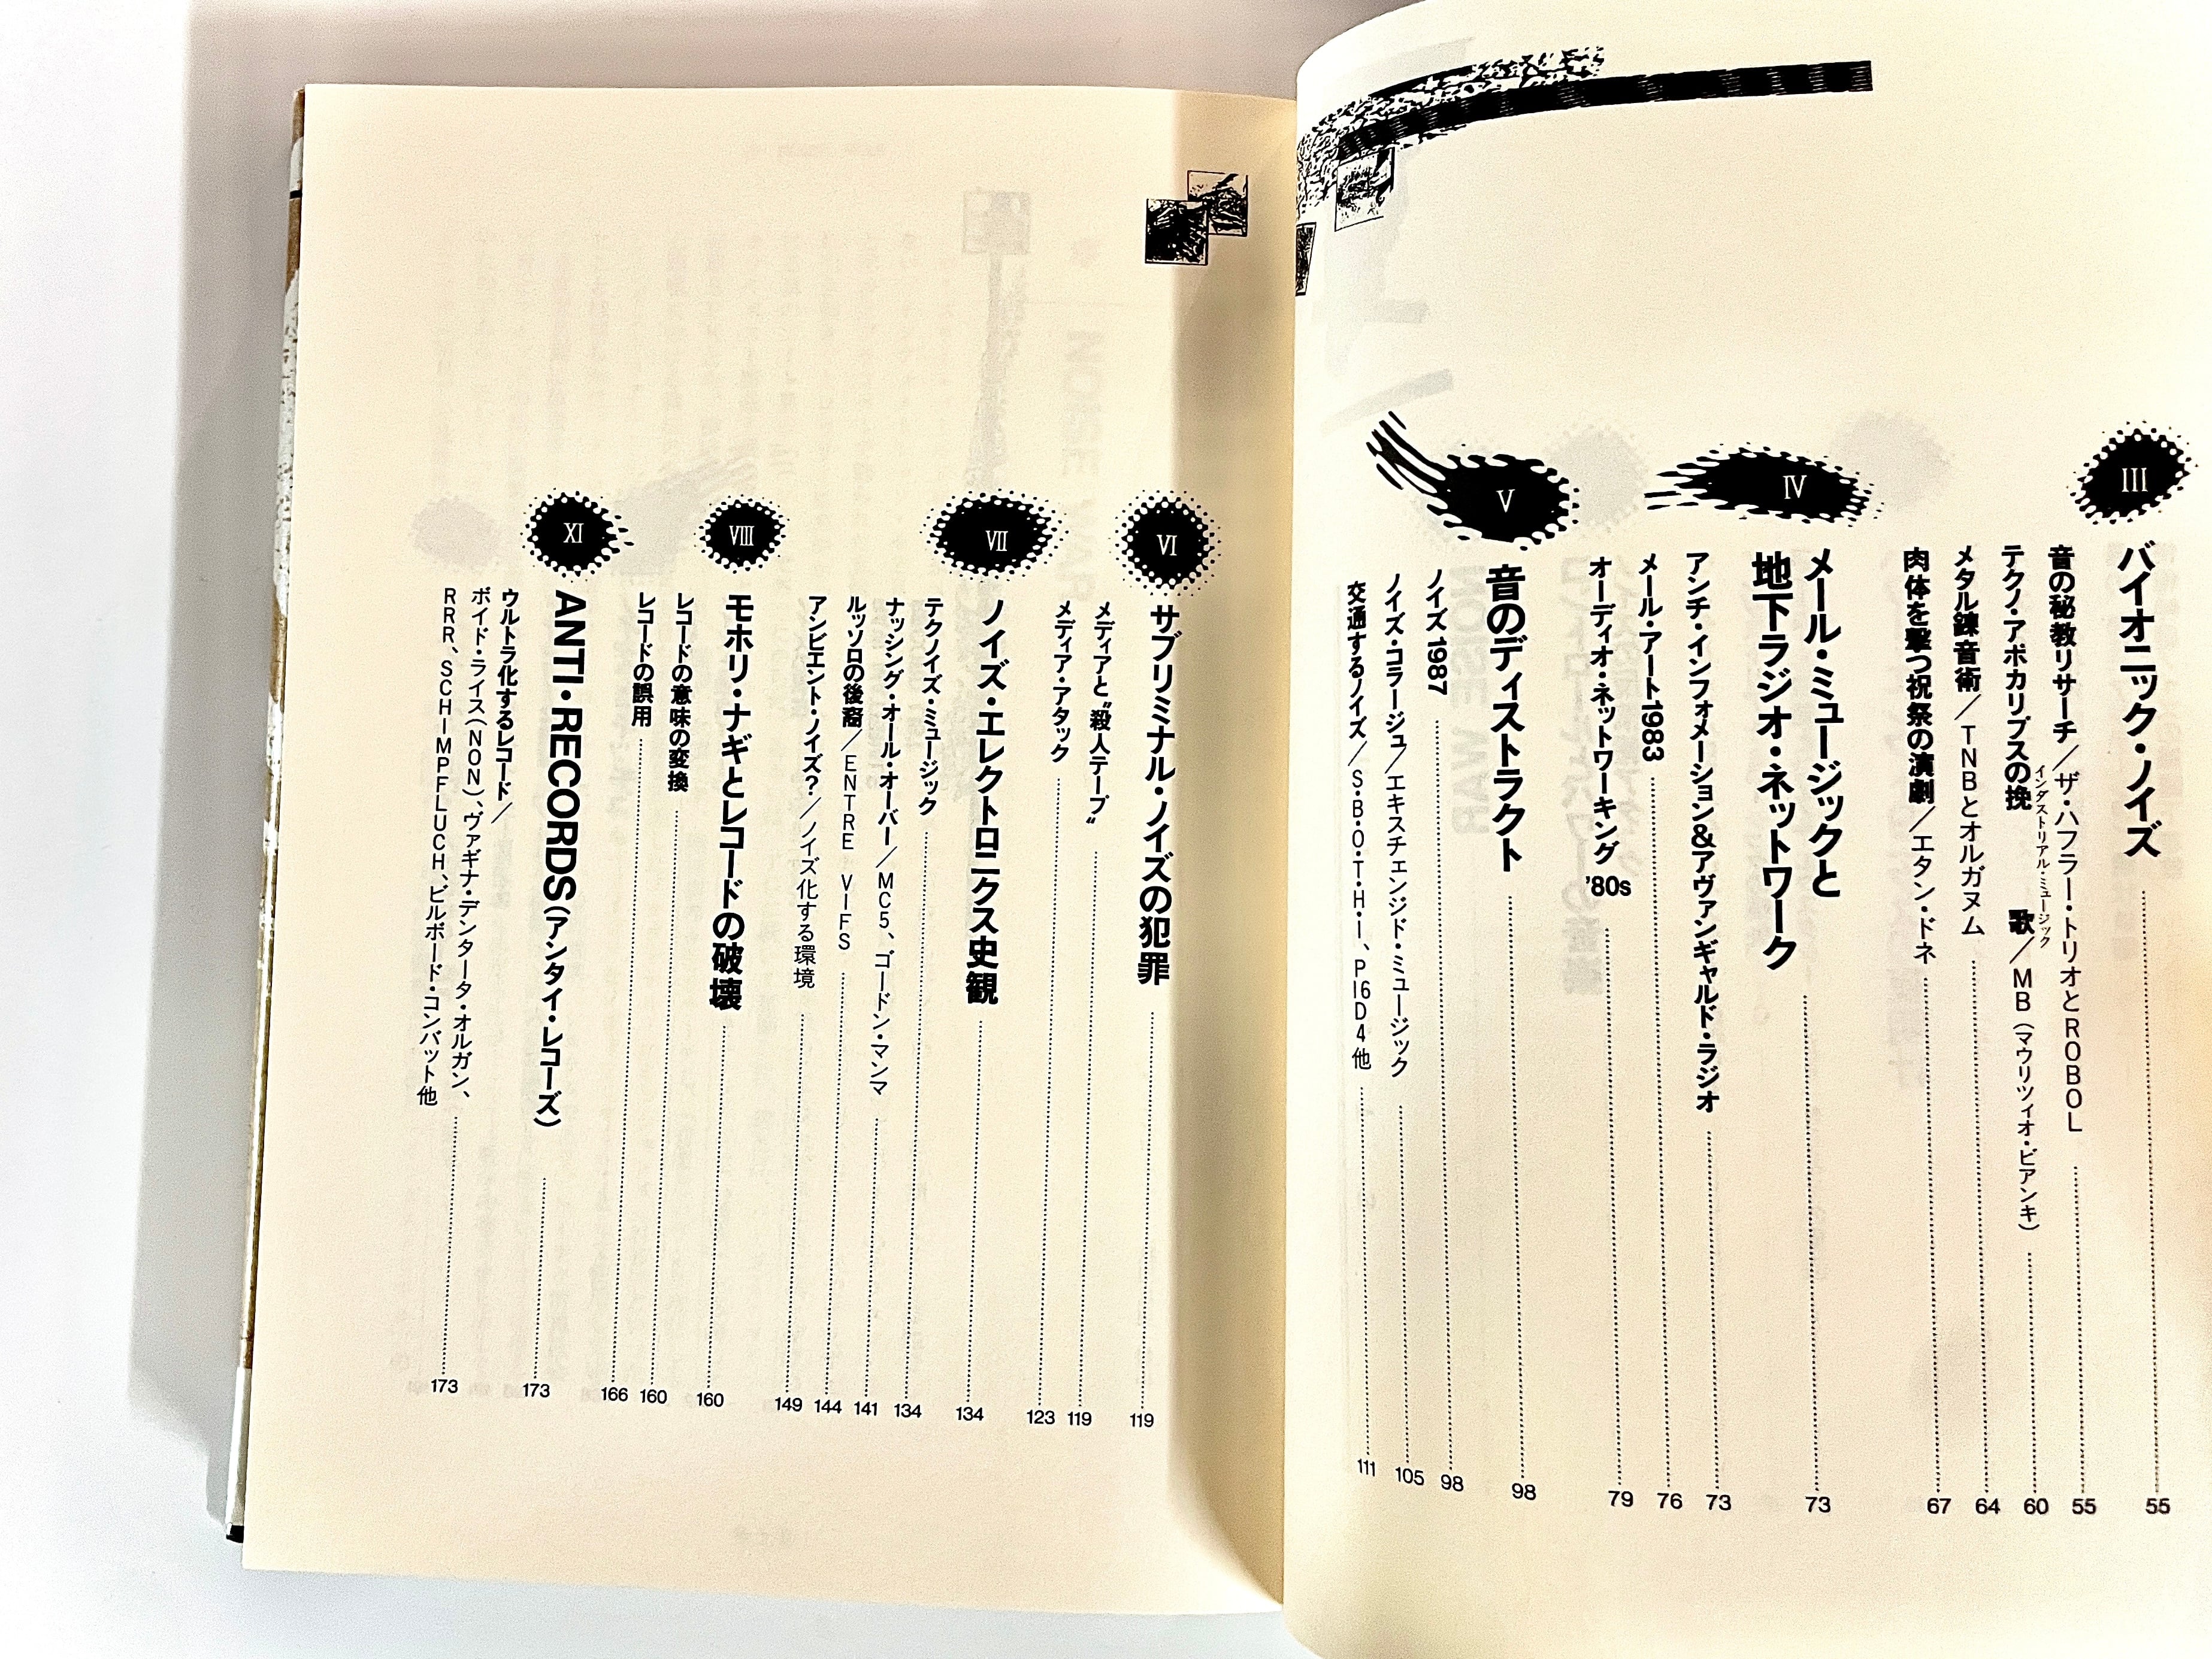 III
バイオニック・ノイズ 55
音の秘教リサーチ／ザ・ハフラー・トリオとROBOL 55
テクノ・アポカリプスの挽歌／MB（マウリツィオ・ビアンキ） 60
インダストリアル・ミュージック
メタル錬音術／TNBとオルガヌム 64
肉体を撃つ祝祭の演劇／エタン・ドネ 67
IV
メール・ミュージックと
地下ラジオ・ネットワーク 73
アンチ・インフォメーション&アヴァンギャルド・ラジオ 73
メール・アート1983 76
オーディオ・ネットワーキング '80s 79
V
音のディストラクト 98
ノイズ 1987 98
ノイズ・コラージュ／エキスチェンジド・ミュージック 105
交通するノイズ／S・B・O・T・H・I、P16D4他 111
VI
サブリミナル・ノイズの犯罪 119
メディアと〝殺人テープ〟 119
メディア・アタック 123
VII
ノイズ・エレクトロニクス史観 134
テクノイズ・ミュージック 134
ナッシング・オール・オーバー／MC5、ゴードン・マンマ 141
ルッソロの後裔／ENTRE VIFS 144
アンビエント・ノイズ?／ノイズ化する環境 149
VIII
モホリ・ナギとレコードの破壊 160
レコードの意味の変換 160
レコードの誤用 166
XI
ANTI・RECORDS（アンタイ・レコーズ） 173
ウルトラ化するレコード／
ボイド・ライス（NON）、ヴァギナ・デンタータ・オルガン、
RRR、SCHIMPFLUCH、ビルボード・コンバット他 173